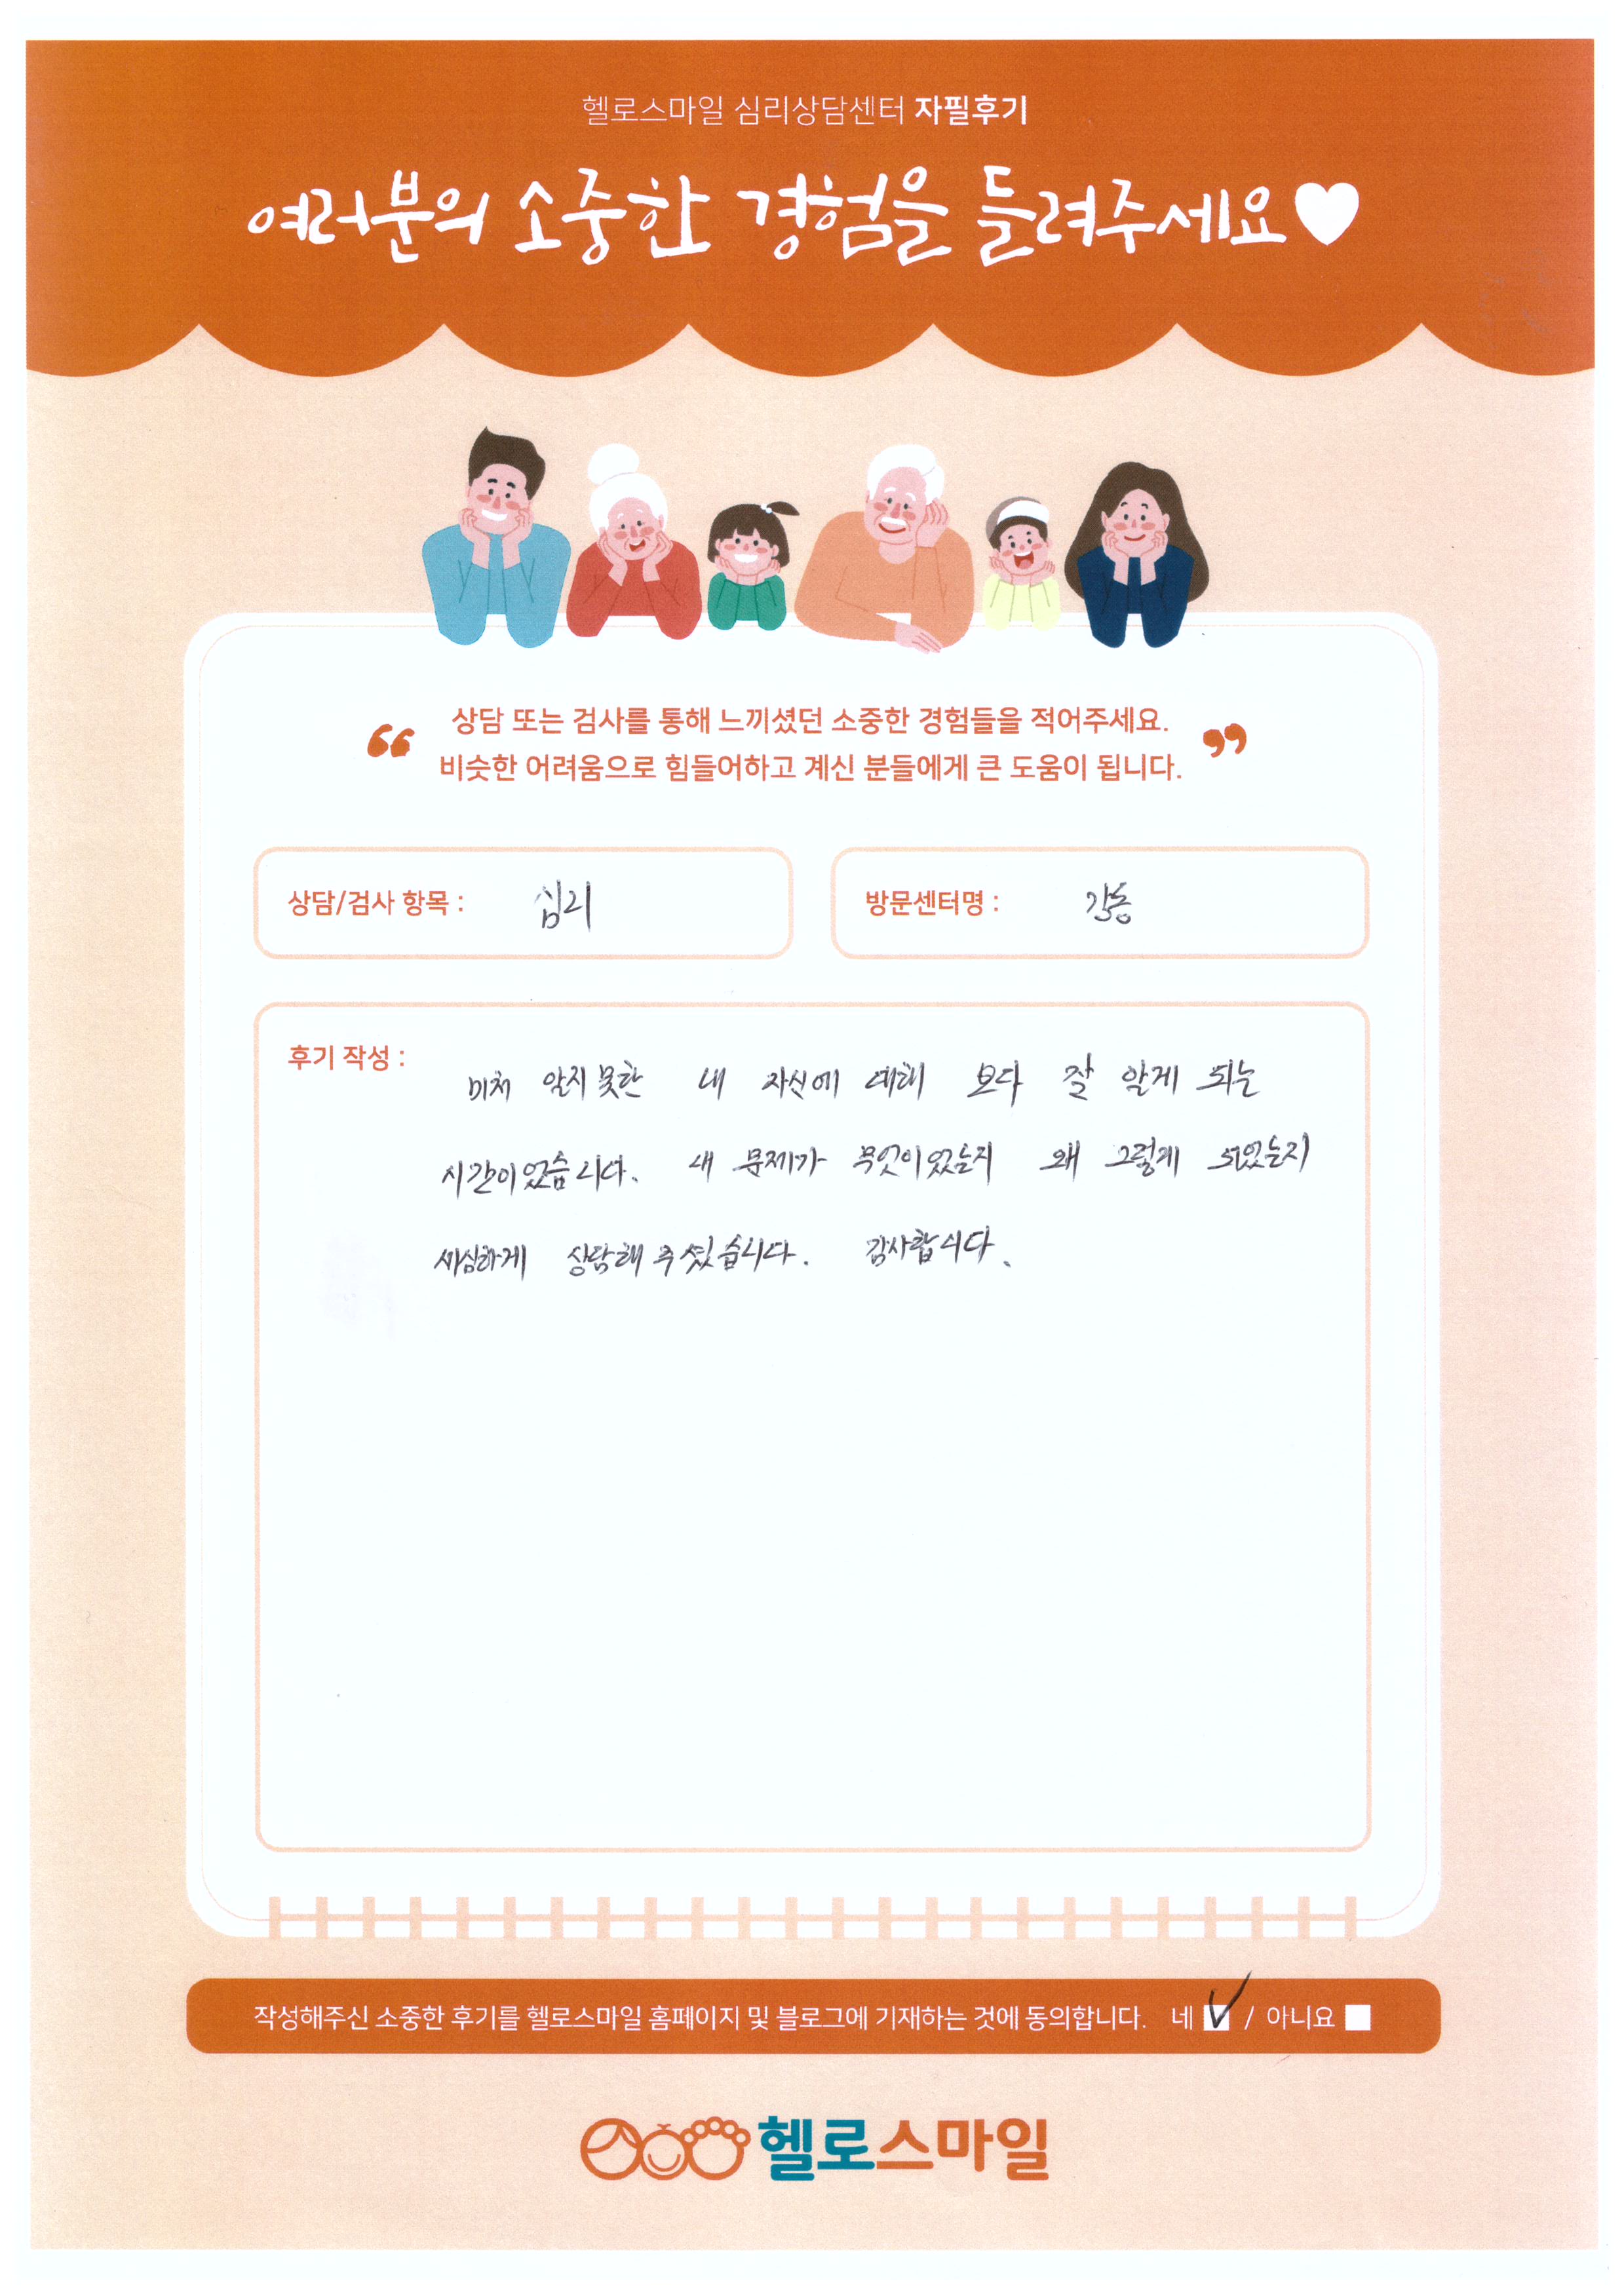 헬로스마일 심리상담센터 자필후기
여러분의 소중한 경험을 들려주세요
상담 또는 검사를 통해 느끼셨던 소중한 경험들을 적어주세요.
비슷한 어려움으로 힘들어하고 계신 분들에게 큰 도움이 됩니다.
상담/검사 항목 : 심리
방문센터명 : 강동
후기 작성 : 미처 알지 못한 내 자신에 대해 보다 잘 알게 되는
시간이었습니다. 내 문제가 무엇이었는지 왜 그렇게 되었는지
세심하게 상담해 주셨습니다. 감사합니다.
작성해주신 소중한 후기를 헬로스마일 홈페이지 및 블로그에 기재하는 것에 동의합니다. 네 / 아니요
헬로스마일